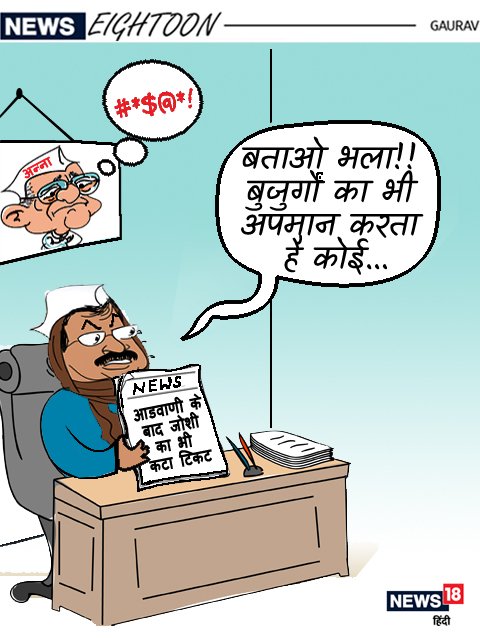 NEWS EIGHTOON GAURAV
#*$@*!
अन्ना
बताओ भला!!
बुजुर्गों का भी
अपमान करता
है कोई...
NEWS
आडवाणी के
बाद जोशी
का भी
कटा टिकट
NEWS18
हिंदी